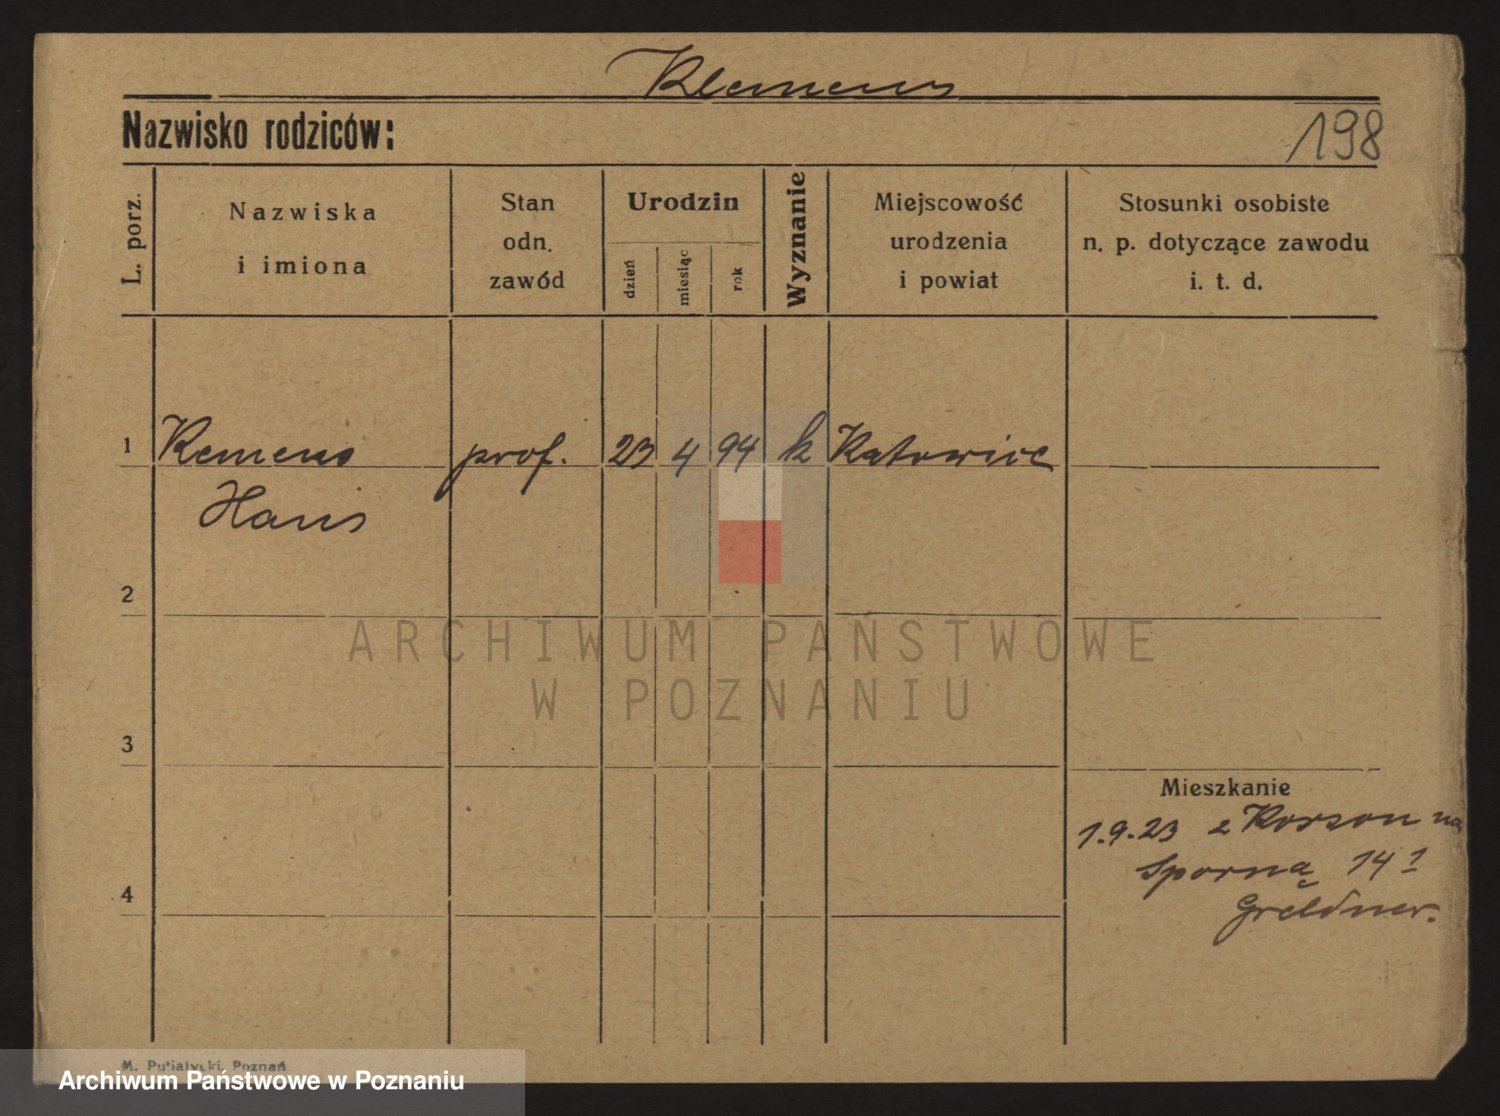 Klemens
Nazwisko rodziców:
198
L. porz.
Nazwiska
i imiona
Stan
odn.
zawód
Urodzin
dzień
miesiąc
rok
Wyznanie
Miejscowość
urodzenia
i powiat
Stosunki osobiste
n. p. dotyczące zawodu
i. t. d.
1 Klemens prof. 23 4 94 k Katowice
Hans
2
ARCHIWUM PAŃSTWOWE
W POZNANIU
3
Mieszkanie
1.9.23 z Korson na
Sporną 14 1
Greldner.
4
M. Putiatycki, Poznań
Archiwum Państwowe w Poznaniu